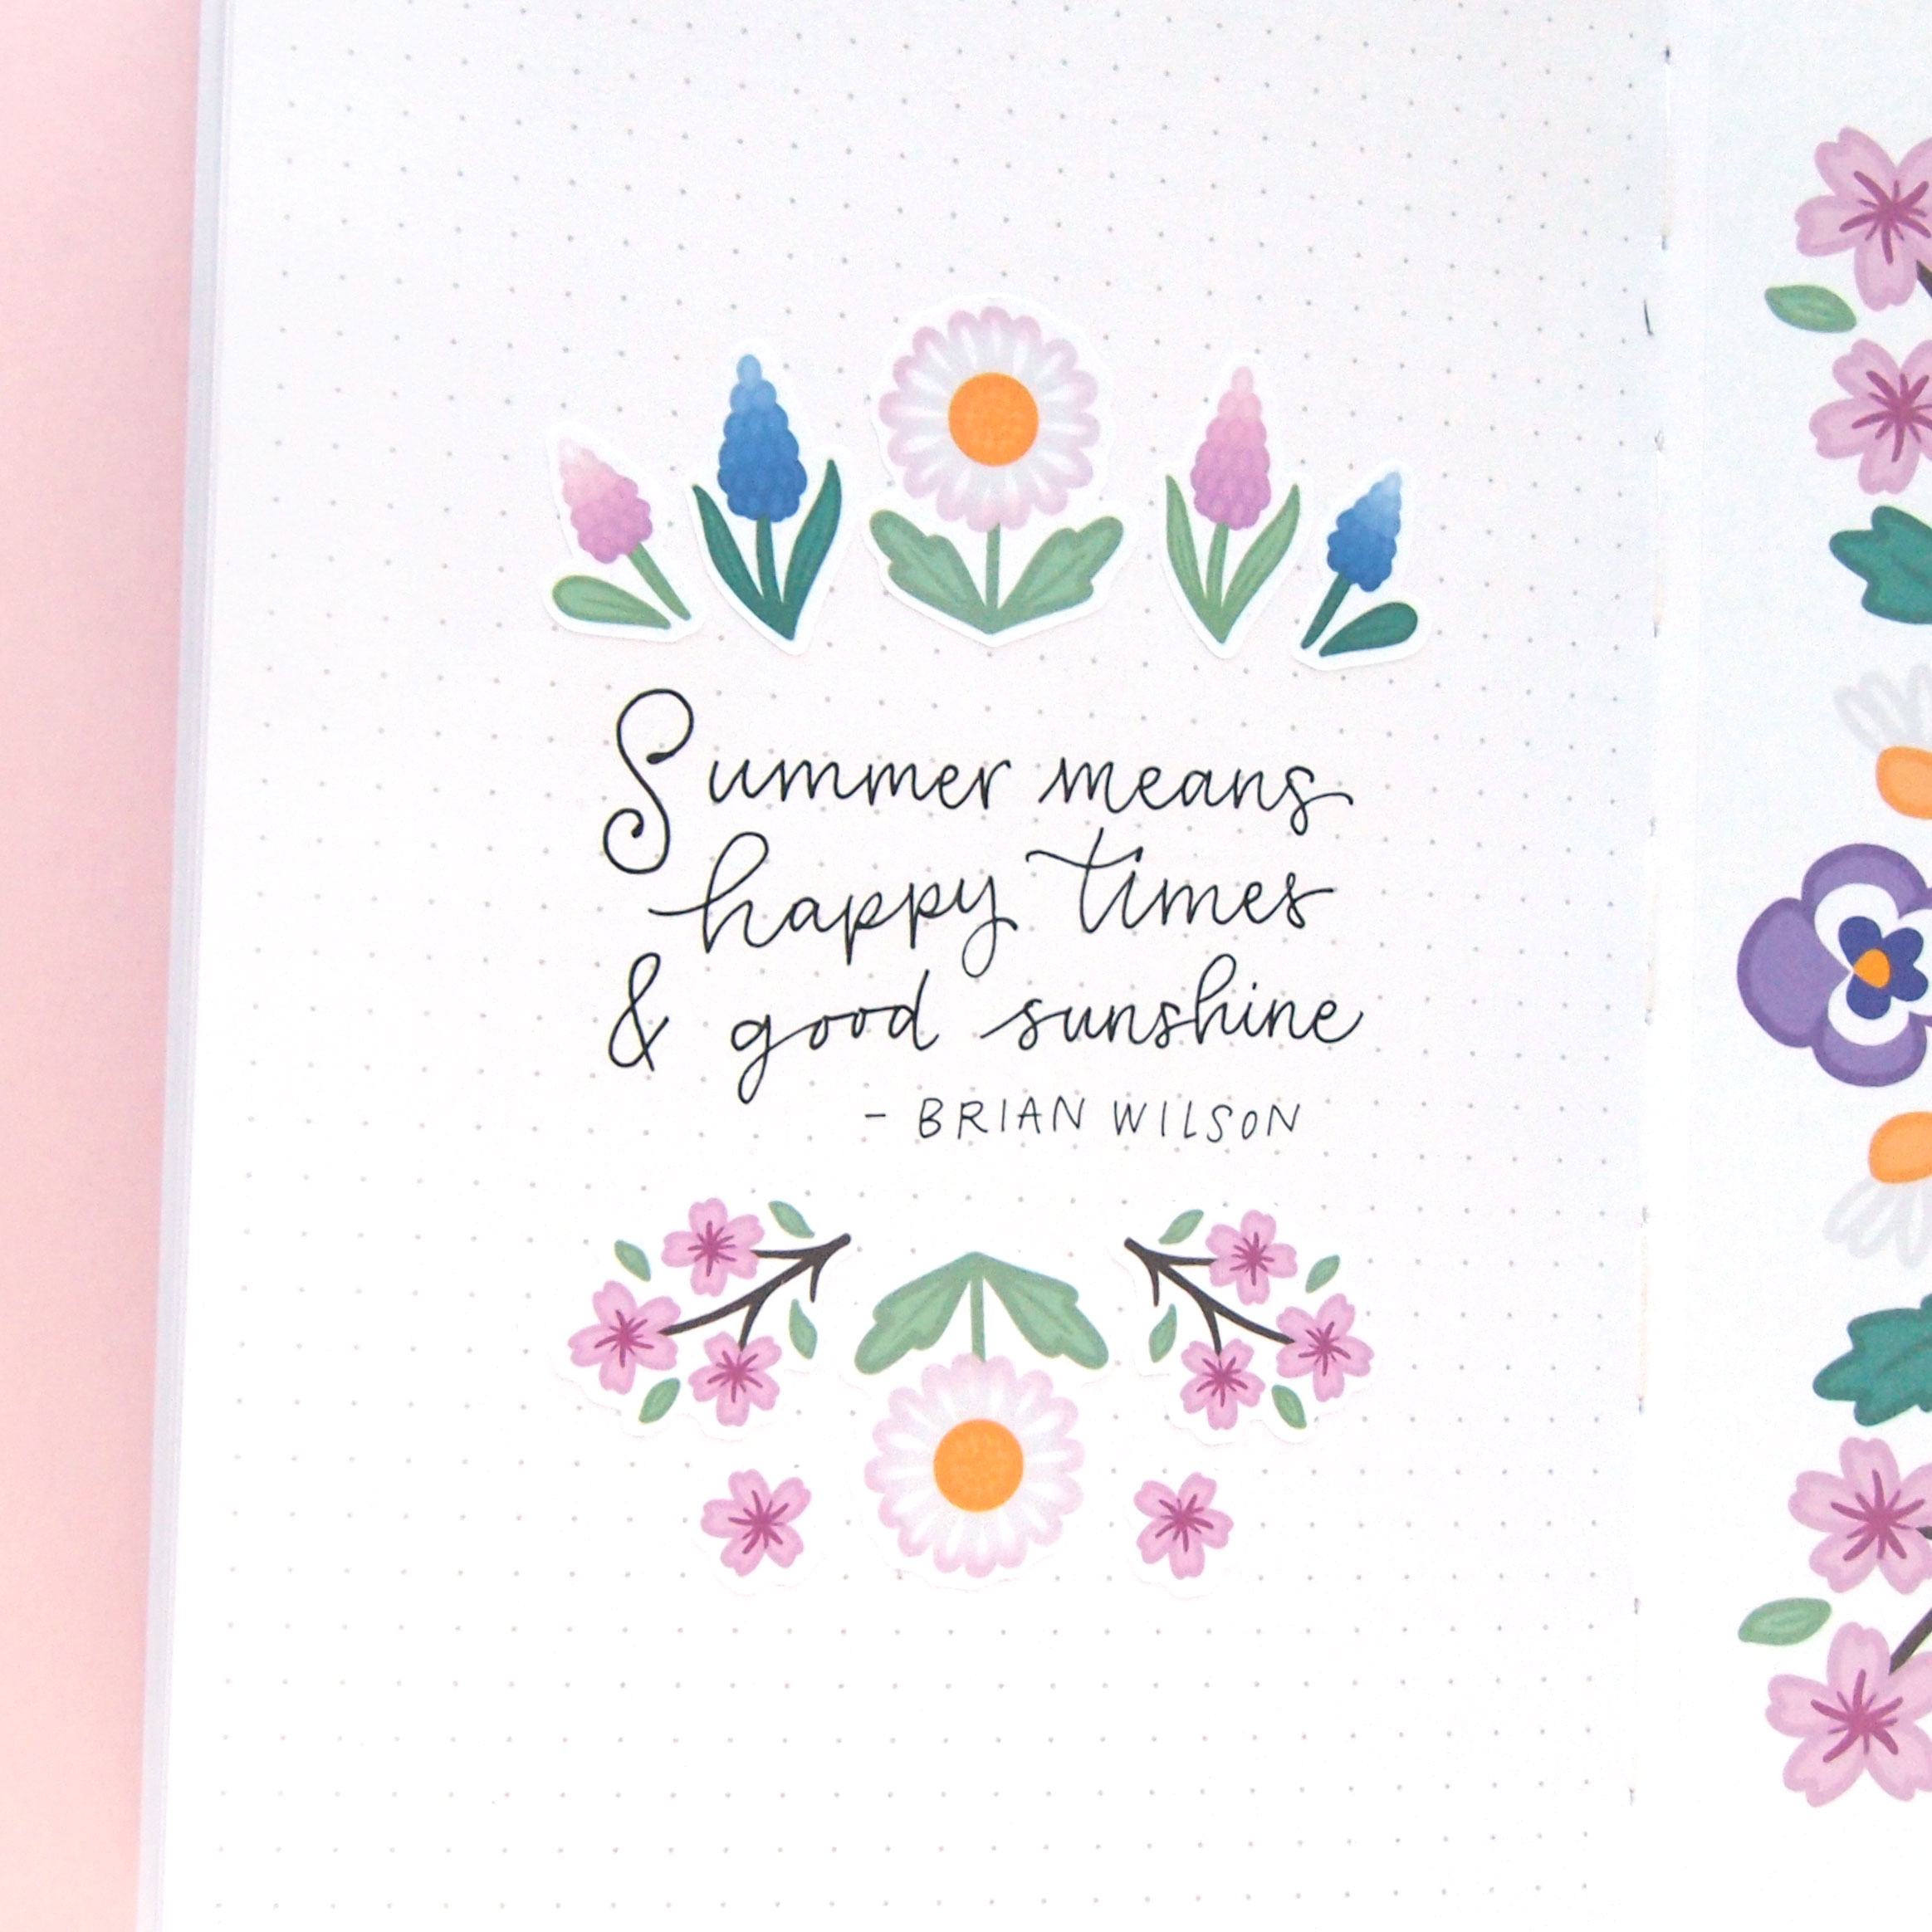 Summer means
happy times
& good sunshine
- BRIAN WILSON